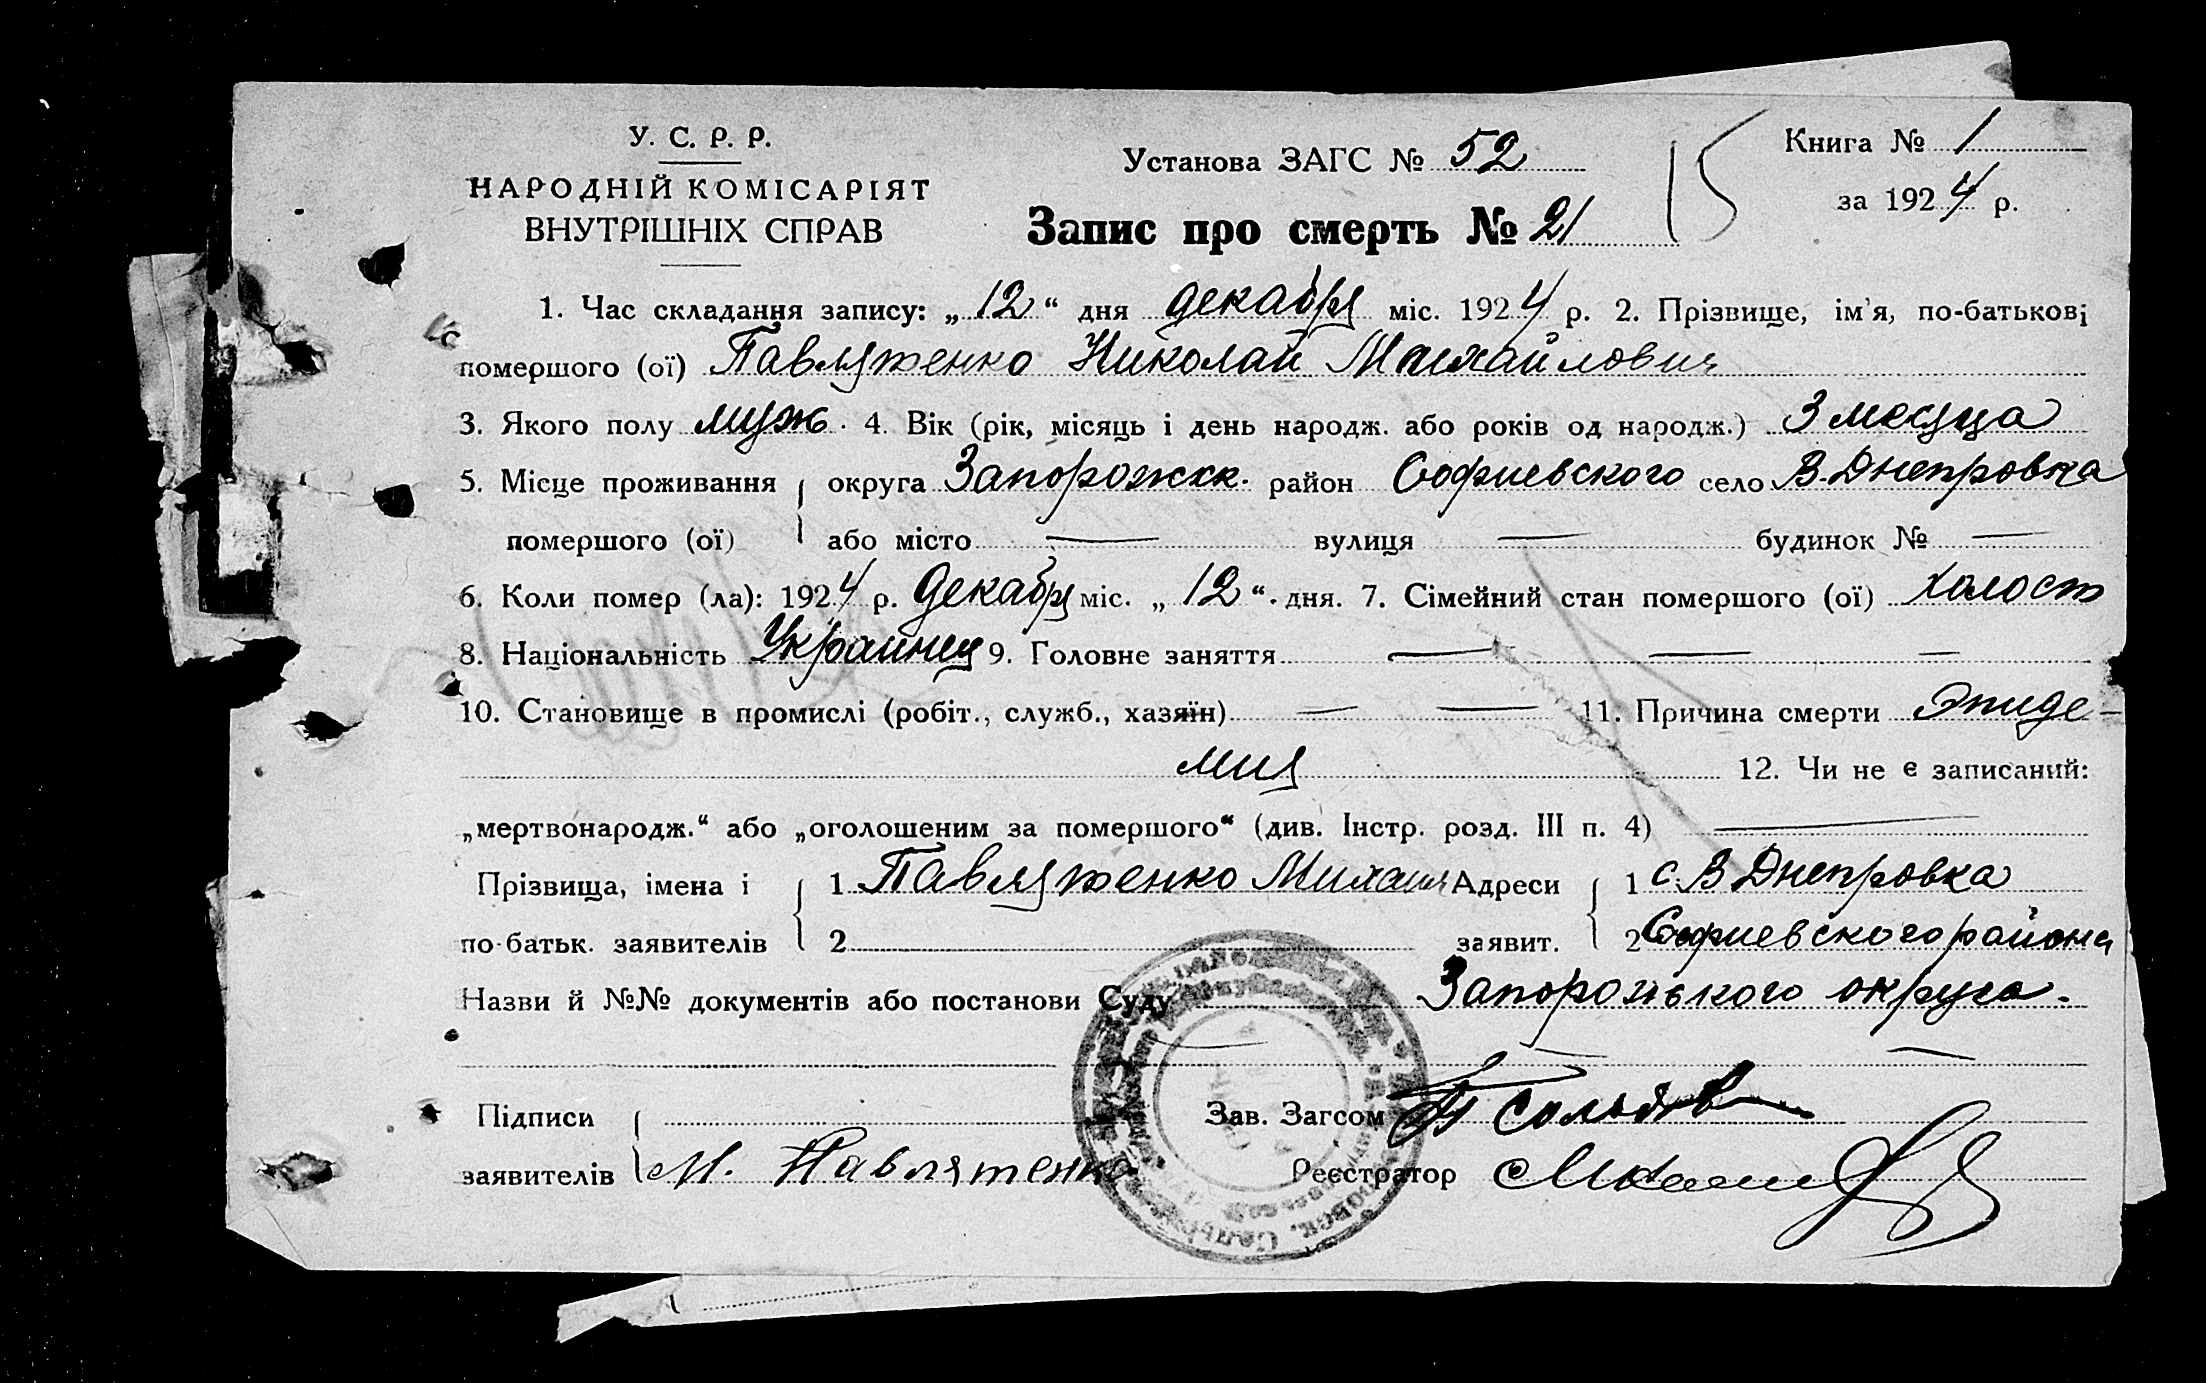 У. С. Р. Р.
НАРОДНІЙ КОМІСАРІЯТ
ВНУТРІШНІХ СПРАВ
Установа ЗАГС № 52
Запис про смерть № 21
15
Книга № 1
за 1924 р.
1. Час складання запису: „12“ дня декабря міс. 1924 р. 2. Прізвище, ім'я, по-батькові
помершого (ої) Павлятенко Николай Михайлович
3. Якого полу муж. 4. Вік (рік, місяць і день народж. або років од народж.) 3 месяца
5. Місце проживання округа Запорожск. район Софиевского село В-Днепровка
помершого (ої) або місто — вулиця — будинок № —
6. Коли помер (ла): 1924 р. декабря міс. „12“. дня. 7. Сімейний стан помершого (ої) холост
8. Національність Украинец 9. Головне заняття — — —
10. Становище в промислі (робіт., служб., хазяїн) — — 11. Причина смерти Эпиде-
мия 12. Чи не є записаний:
„мертвонародж.“ або „оголошеним за помершого“ (див. Інстр. розд. III п. 4) —
Прізвища, імена і 1 Павлятенко Михаил Адреси 1 с. В Днепровка
по-батьк. заявителів 2 заявит. 2 Софиевского района
Назви й №№ документів або постанови Суду Запорозького округа.
Підписи Зав. Загсом
заявителів М. Павлятенко Реєстратор